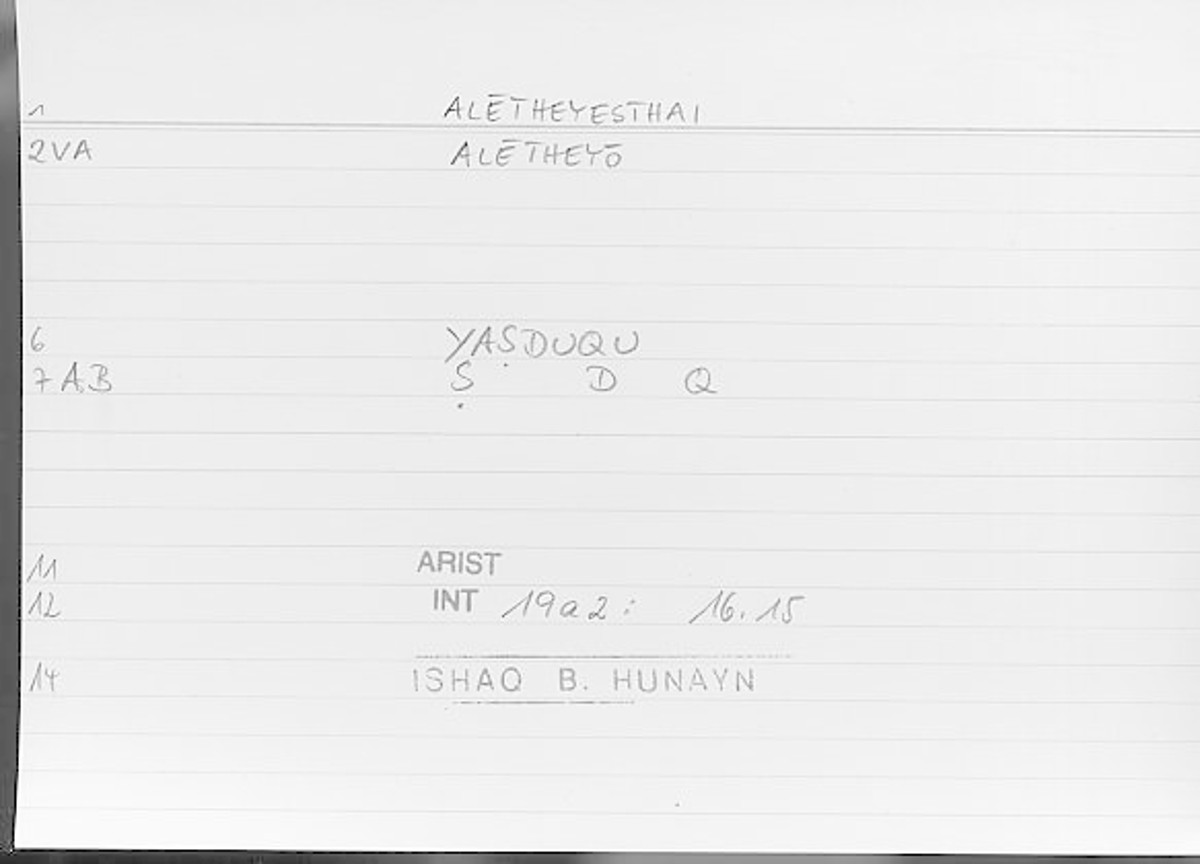 1 ALĒTHEYESTHAI
2VA ALĒTHEYŌ
6 YAṢDUQU
7 A.B Ṣ D Q
11 ARIST
12 INT 19a2: 16.15
14 ISHAQ B. HUNAYN